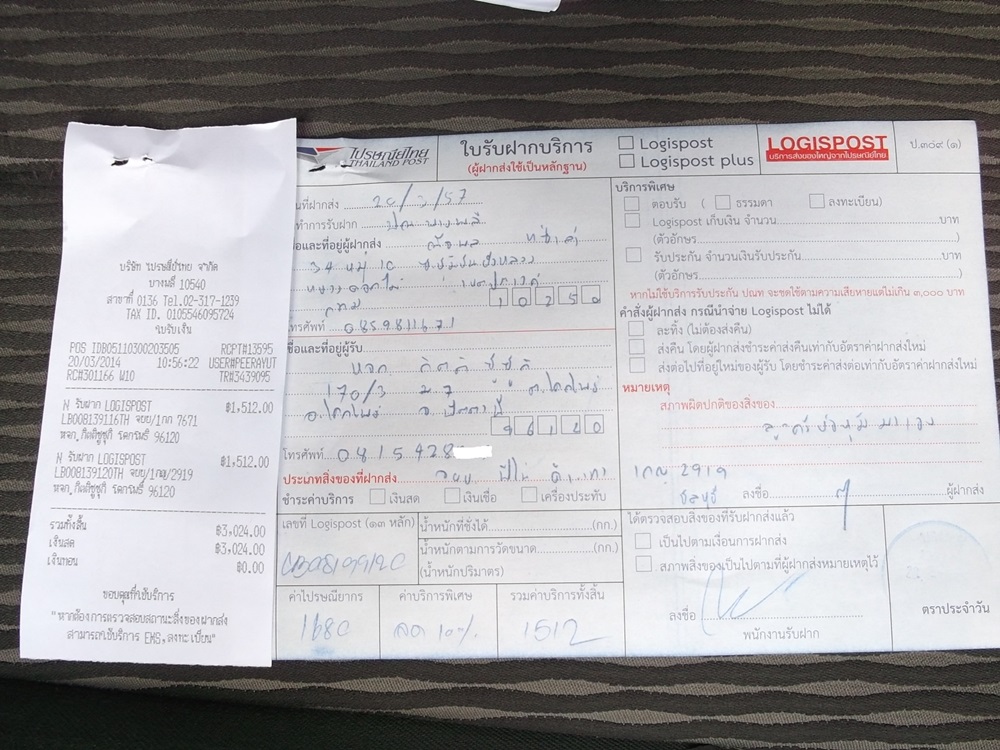 บริษัท ไปรษณีย์ไทย จำกัด
บางพลี 10540
สาขาที่ 0136 Tel.02-317-1239
TAX ID. 0105546095724
ใบรับเงิน
POS ID805110300203505 RCPT#13595
20/03/2014 10:56:22 USER#PEERAYUT
RC#301166 W10 TR#3439095
N รับฝาก LOGISPOST ฿1,512.00
LB008139116TH จยย/1กก 7671
หจก.กิตติชูชุติ โคกโพธิ์ 96120
N รับฝาก LOGISPOST ฿1,512.00
LB008139120TH จยย/1กญ/2919
หจก.กิตติชูชุติ โคกโพธิ์ 96120
รวมทั้งสิ้น ฿3,024.00
เงินสด ฿3,024.00
เงินทอน ฿0.00
ขอบคุณที่ใช้บริการ
"หากต้องการตรวจสอบสถานะสิ่งของฝากส่ง
สามารถใช้บริการ EMS,ลงทะเบียน"
ไปรษณีย์ไทย
THAILAND POST
ใบรับฝากบริการ
(ผู้ฝากส่งใช้เป็นหลักฐาน)
Logispost
Logispost plus
LOGISPOST
บริการส่งของใหญ่จากไปรษณีย์ไทย
ป.๓๐๙ (๑)
วันที่ฝากส่ง 20/3/57
ที่ทำการรับฝาก ปณ บางพลี
ชื่อและที่อยู่ผู้ฝากส่ง
34 หมู่ 10
กทม 10250
โทรศัพท์ 0859811671
ชื่อและที่อยู่ผู้รับ
หจก กิตติชูชุติ
170/3 ม.7 ต.โคกโพธิ์
อ.โคกโพธิ์ จ.ปัตตานี
96120
โทรศัพท์ 0815928
ประเภทสิ่งของที่ฝากส่ง จยย.
ชำระค่าบริการ เงินสด เงินเชื่อ เครื่องประทับ
เลขที่ Logispost (๑๓ หลัก)
น้ำหนักที่ชั่งได้ (กก.)
น้ำหนักตามการวัดขนาด (กก.)
(น้ำหนักปริมาตร)
ค่าไปรษณียากร ค่าบริการพิเศษ รวมค่าบริการทั้งสิ้น
1680 ลด 10% 1512
บริการพิเศษ
ตอบรับ ( ธรรมดา ลงทะเบียน)
Logispost เก็บเงิน จำนวน บาท
(ตัวอักษร )
รับประกัน จำนวนเงินรับประกัน บาท
(ตัวอักษร )
หากไม่ใช้บริการรับประกัน ปณท จะชดใช้ตามความเสียหายแต่ไม่เกิน ๓,๐๐๐ บาท
คำสั่งผู้ฝากส่ง กรณีนำจ่าย Logispost ไม่ได้
ละทิ้ง (ไม่ต้องส่งคืน)
ส่งคืน โดยผู้ฝากส่งชำระค่าส่งคืนเท่ากับอัตราค่าฝากส่งใหม่
ส่งต่อไปที่อยู่ใหม่ของผู้รับ โดยชำระค่าส่งต่อเท่ากับอัตราค่าฝากส่งใหม่
หมายเหตุ
สภาพผิดปกติของสิ่งของ
ลูกค้าห่อหุ้มมาเอง
1กญ 2919
ชลบุรี
ลงชื่อ ผู้ฝากส่ง
ได้ตรวจสอบสิ่งของที่รับฝากส่งแล้ว
เป็นไปตามเงื่อนการฝากส่ง
สภาพสิ่งของเป็นไปตามที่ผู้ฝากส่งหมายเหตุไว้
ลงชื่อ
พนักงานรับฝาก
ตราประจำวัน